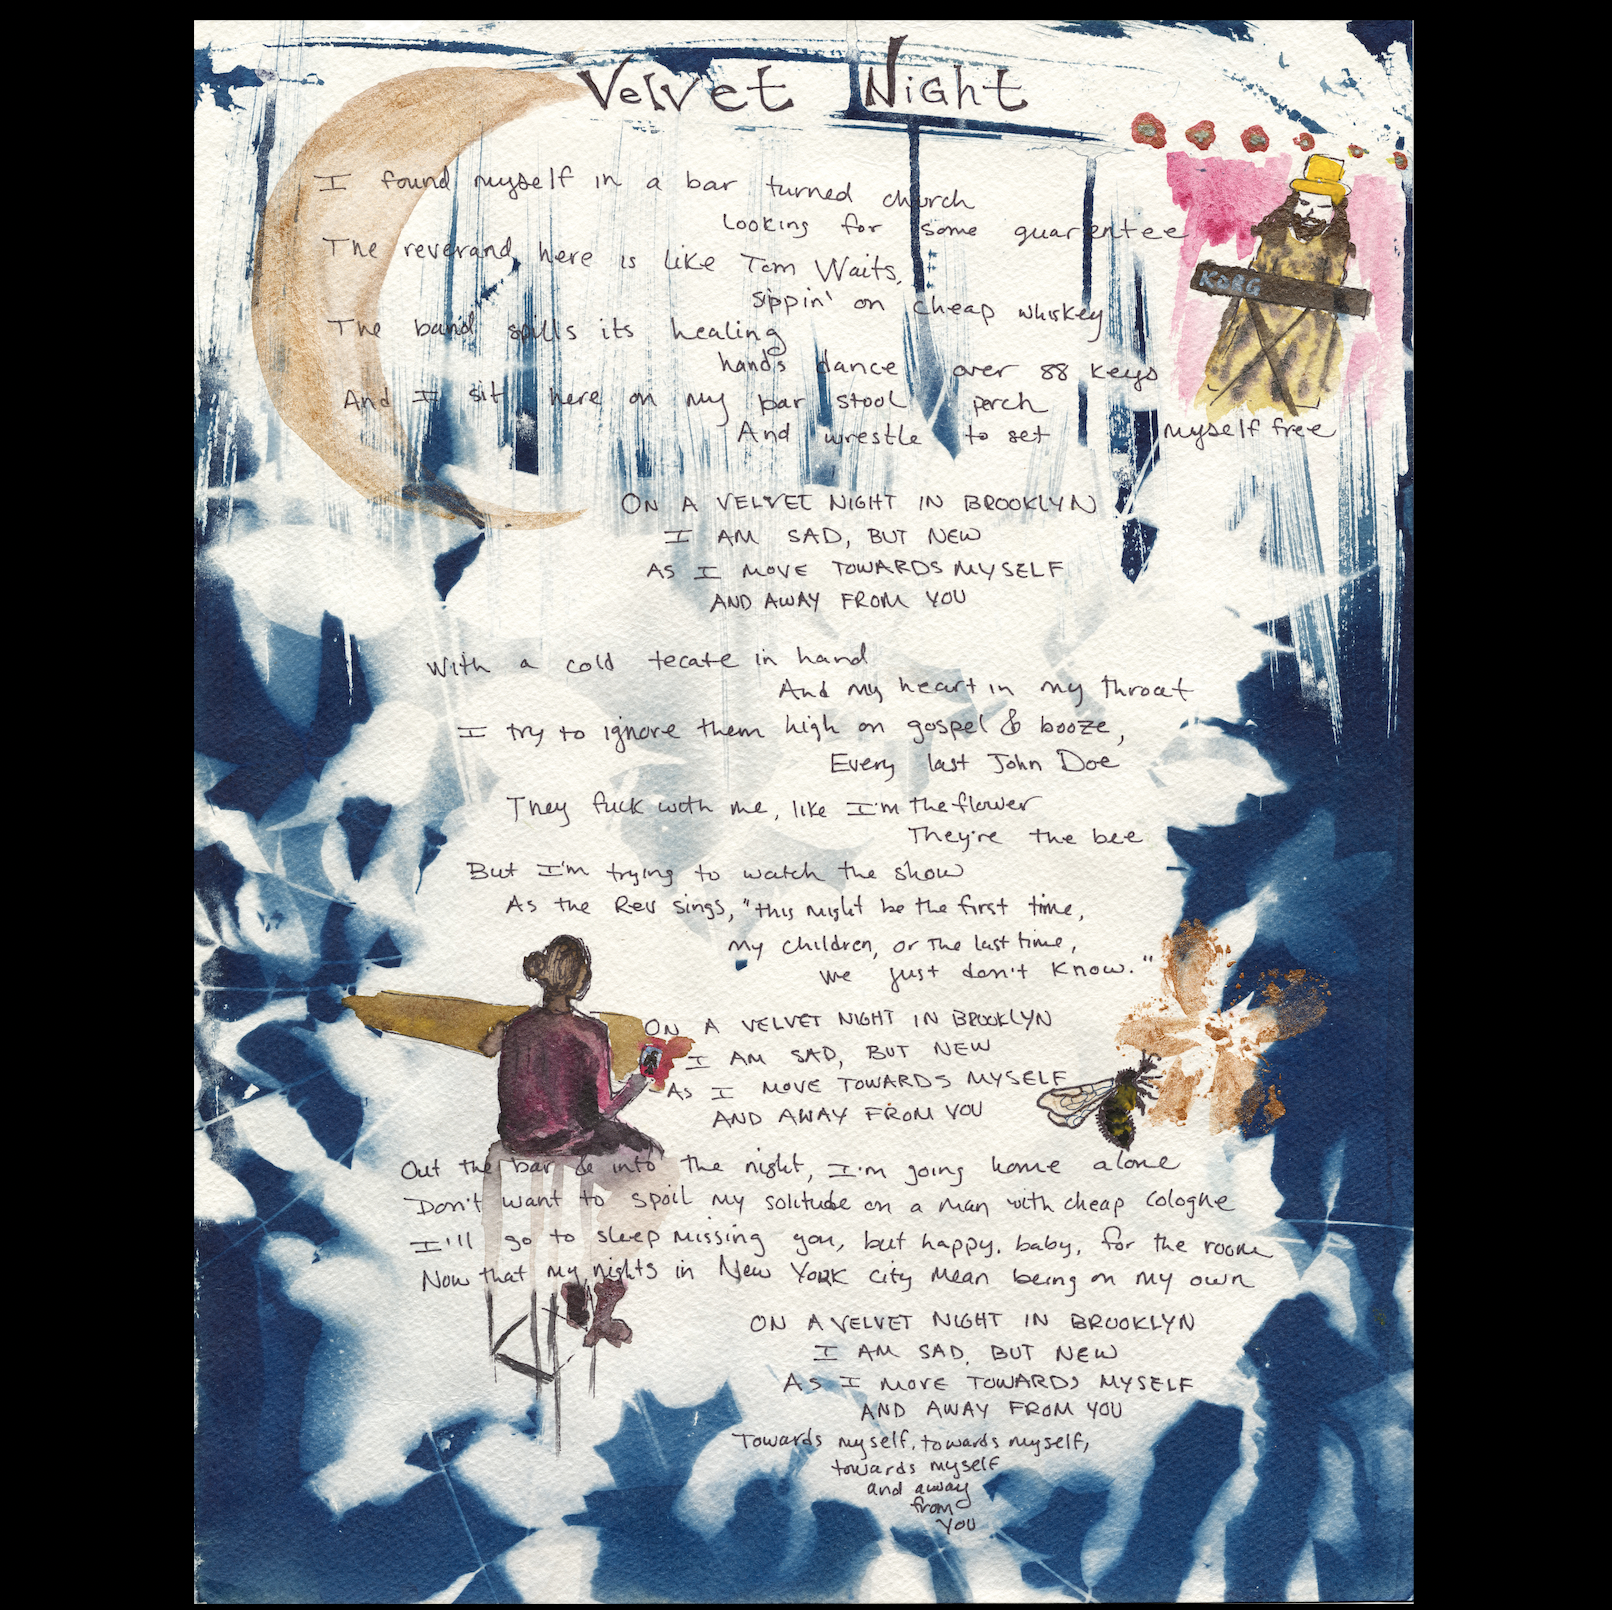 Velvet Night
I found myself in a bar turned church
Looking for some guarentee
The reverand here is like Tom Waits,
sippin' on cheap whiskey
The band spills its healing
hands dance over 88 keys
And I sit here on my bar stool perch
And wrestle to set myself free
KORG
ON A VELVET NIGHT IN BROOKLYN
I AM SAD, BUT NEW
AS I MOVE TOWARDS MYSELF
AND AWAY FROM YOU
With a cold tecate in hand
And my heart in my throat
I try to ignore them high on gospel & booze,
Every last John Doe
They fuck with me, like I'm the flower
They're the bee
But I'm trying to watch the show
As the Rev sings, "this might be the first time,
my children, or the last time,
we just don't know."
ON A VELVET NIGHT IN BROOKLYN
I AM SAD, BUT NEW
AS I MOVE TOWARDS MYSELF
AND AWAY FROM YOU
Out the bar & into the night, I'm going home alone
Don't want to spoil my solitude on a man with cheap cologne
I'll go to sleep missing you, but happy, baby, for the room
Now that my nights in New York city mean being on my own
ON A VELVET NIGHT IN BROOKLYN
I AM SAD, BUT NEW
AS I MOVE TOWARDS MYSELF
AND AWAY FROM YOU
Towards myself, towards myself,
towards myself
and away
from
YOU